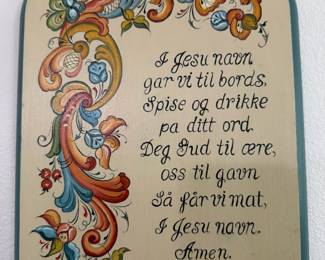 I Jesu navn
gar vi til bords,
Spise og drikke
pa ditt ord.
Deg Gud til ære,
oss til gavn
Så får vi mat,
I Jesu navn.
Amen.